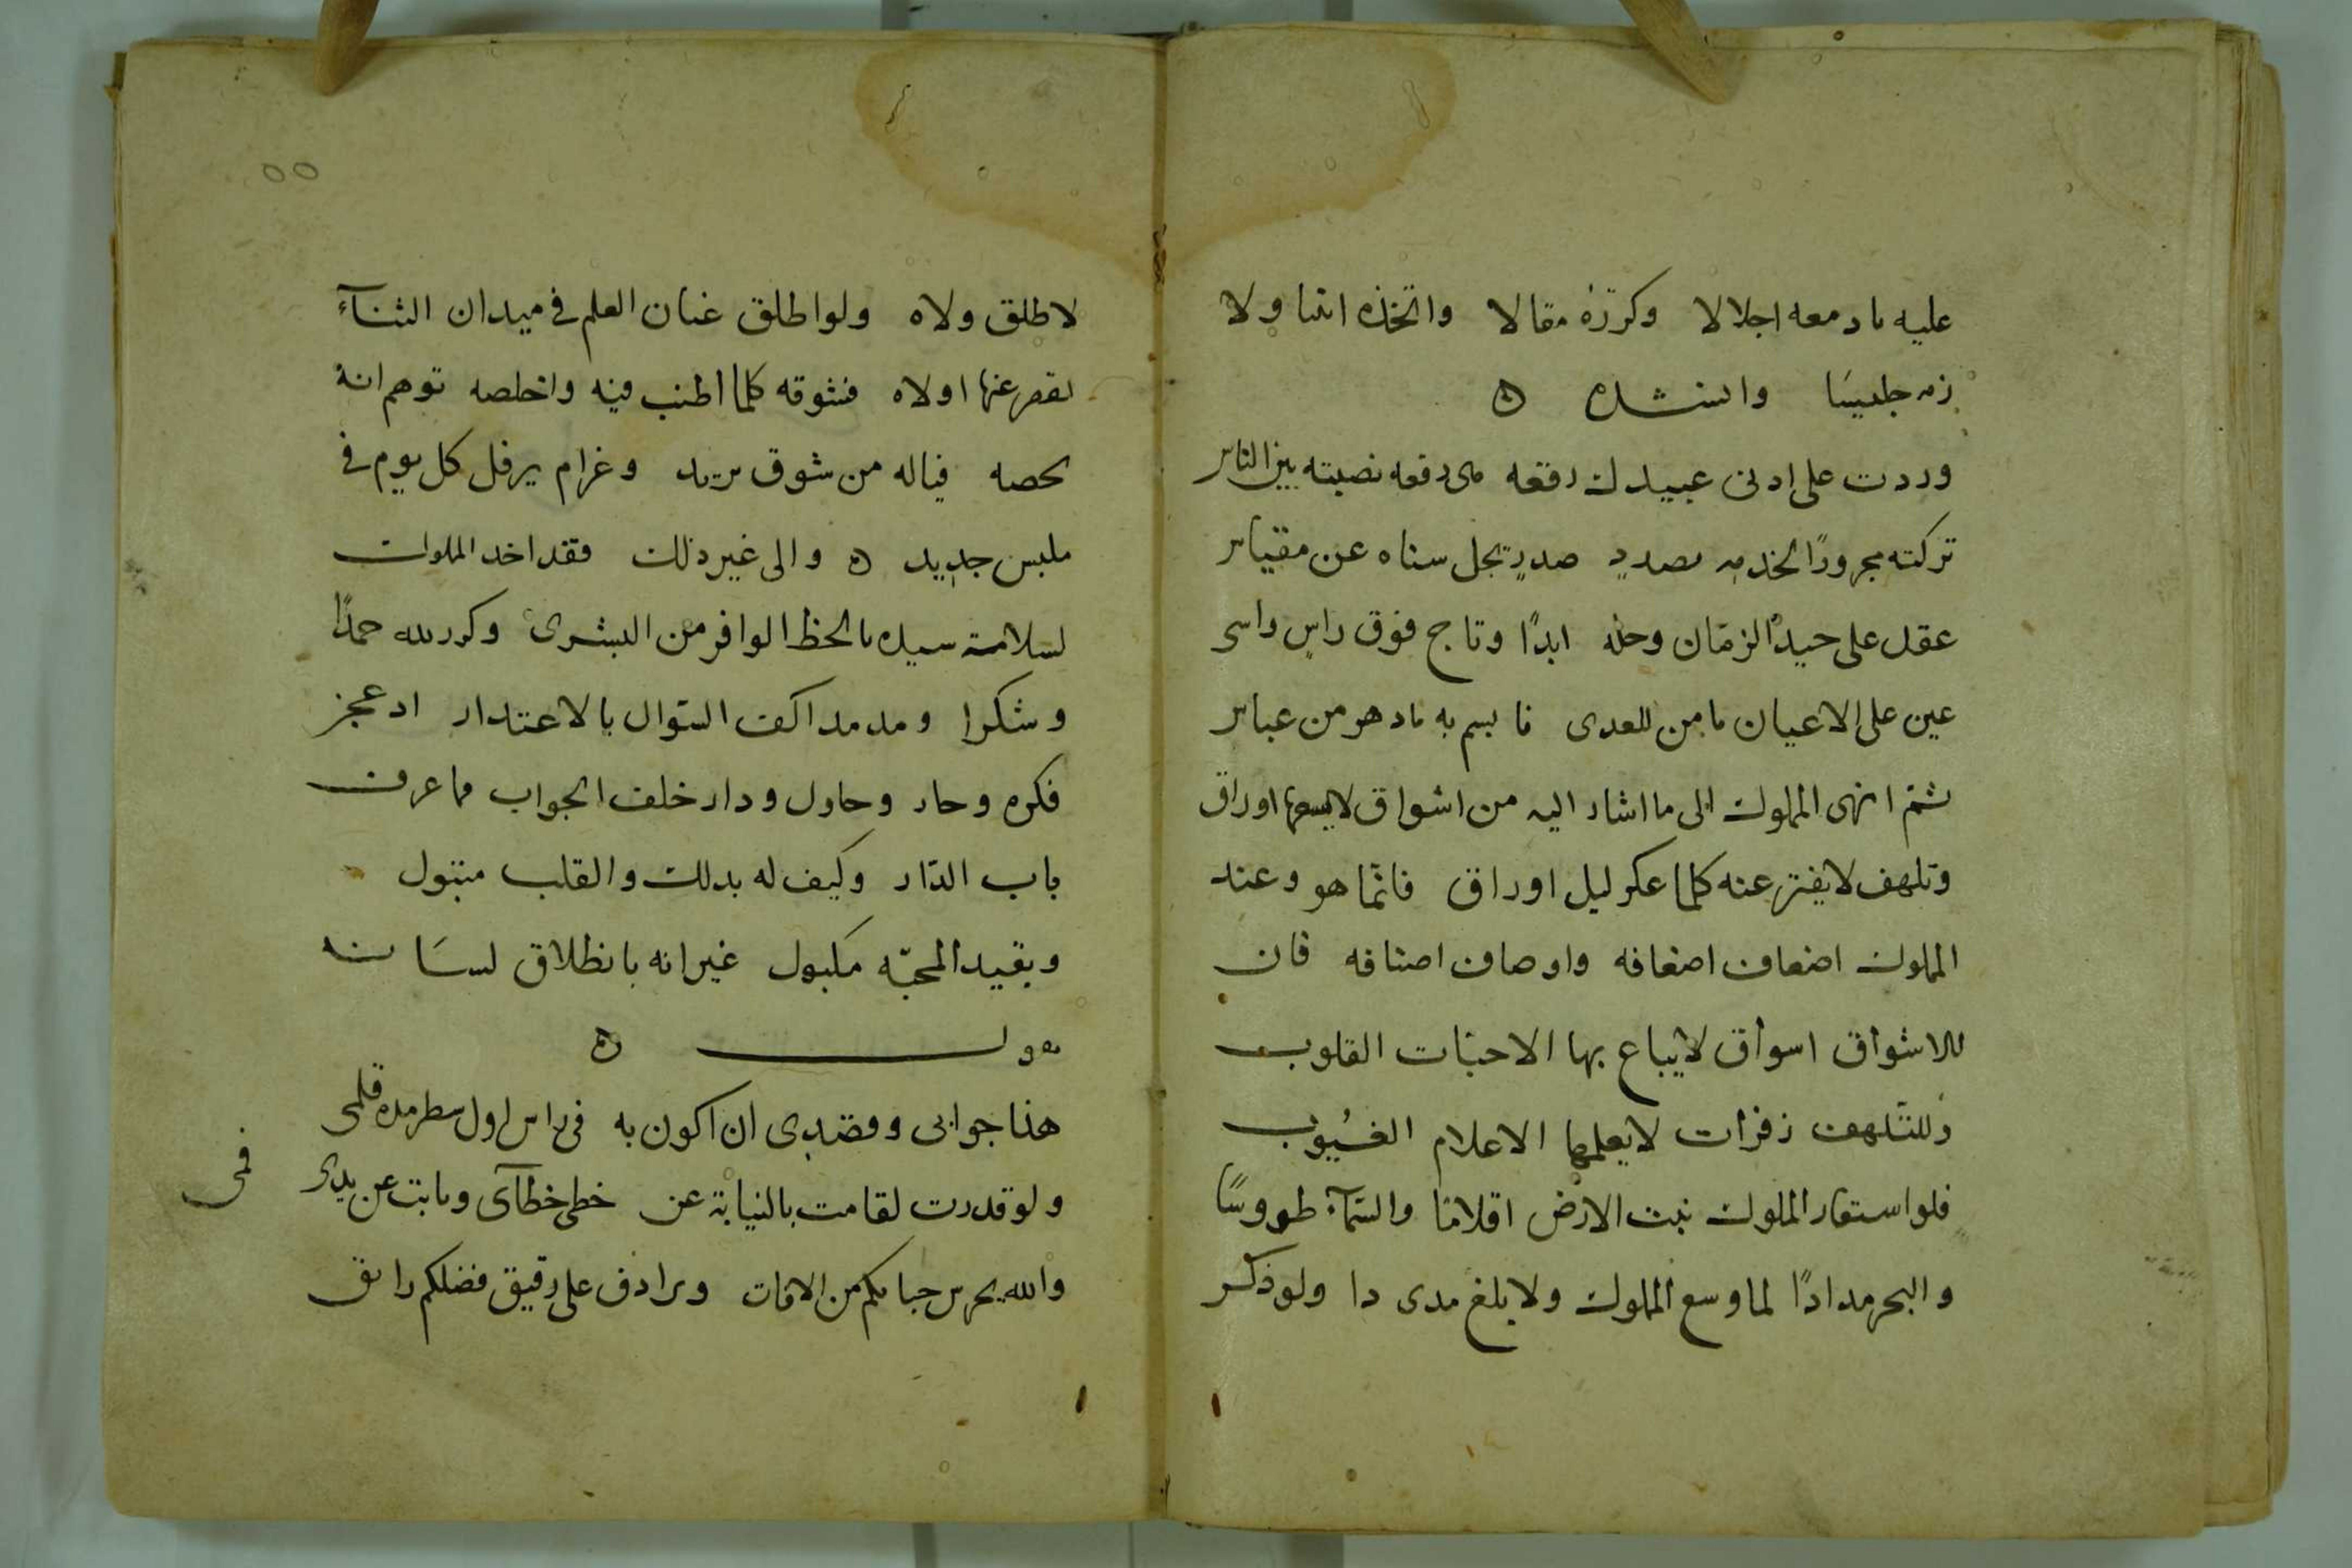 عليه بادمعه اجلالا وكرره مقالا واتخذه انيسا ولا
زمه جليسا وانشده ه
وردت على ادنى عبيدك رقعه هى رفعه نصبته بين الناس
تركته مجرورًا لخدمه مصدر صدرٍ تجل سناه عن مقياس
عقد على جيد الزمان وحله ابدًا وتاج فوق راس راسى
عين على الاعيان مامن للعدى فابسم به يادهر من عباس
ثم انهى المملوك الى ما اشار اليه من اشواق لايسعها اوراق
وتلهف لايفتر عنه كلما عكر ليل اوراق فانما هو وعند
المملوك اضعاف اضعافه واوصاف اصنافه فان
للاشواق اسواق لايباع بها الاحبات القلوب
وللتلهف زفرات لايعلمها الاعلام الغيوب
فلو استعار المملوك نبت الارض اقلامًا والسمآء طروسًا
والبحر مدادًا لما وسع المملوك ولا بلغ مدى دا ولو ذكر
٥٥
لاطلق ولاه ولو اطلق عنان العلم فى ميدان الثنآء
لقصر عنها اولاه فشوقه كلما اطنب فيه واخلصه توهم انه
لخصه فياله من شوق يزيد وغرام يرفل كل يوم فى
ملبس جديد ه والى غير ذلك فقد اخد المملوك
لسلامة سيده بالحظ الوافر من البشرى وكرر لله حمدًا
وشكرا ومد مد اكف السوال بالاعتدار اد عجز
فكره وحار وحاول ودار خلف الجواب فما عرف
باب الدار وكيف له بدلك والقلب متبول
وبقيد المحبه مكبول غير انه بانطلاق لسانه
يقول ه
هذا جوابى وقصدى ان اكون به فى راس اول سطر مده قلمى
ولو قدرت لقامت بالنيابة عن خطى خطآى ونابت عن يدى
فمى
والله يحرس جنابكم من الافات ويرادف على رقيق فضلكم رايق